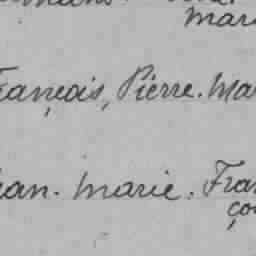 Mar
rançois, Pierre. Ma
ean. Marie. Fran
ço